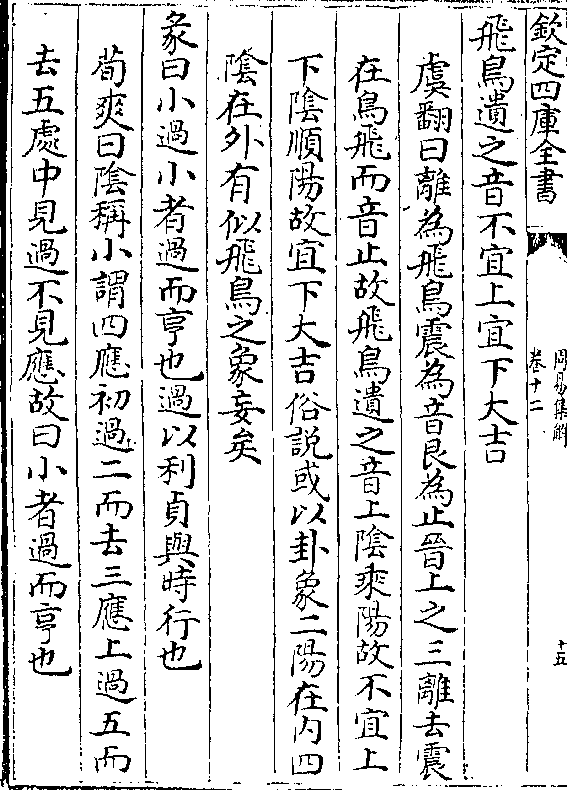 欽定四庫全書
周易集解
卷十二
十五
飛鳥遺之音不宜上宜下大吉
虞翻曰離為飛鳥震為音艮為止晉上之三離去震
在鳥飛而音止故飛鳥遺之音上陰乘陽故不宜上
下陰順陽故宜下大吉俗説或以卦象二陽在内四
陰在外有似飛鳥之象妄矣
彖曰小過小者過而亨也過以利貞與時行也
荀爽曰陰稱小謂四應初過二而去三應上過五而
去五處中見過不見應故曰小者過而亨也